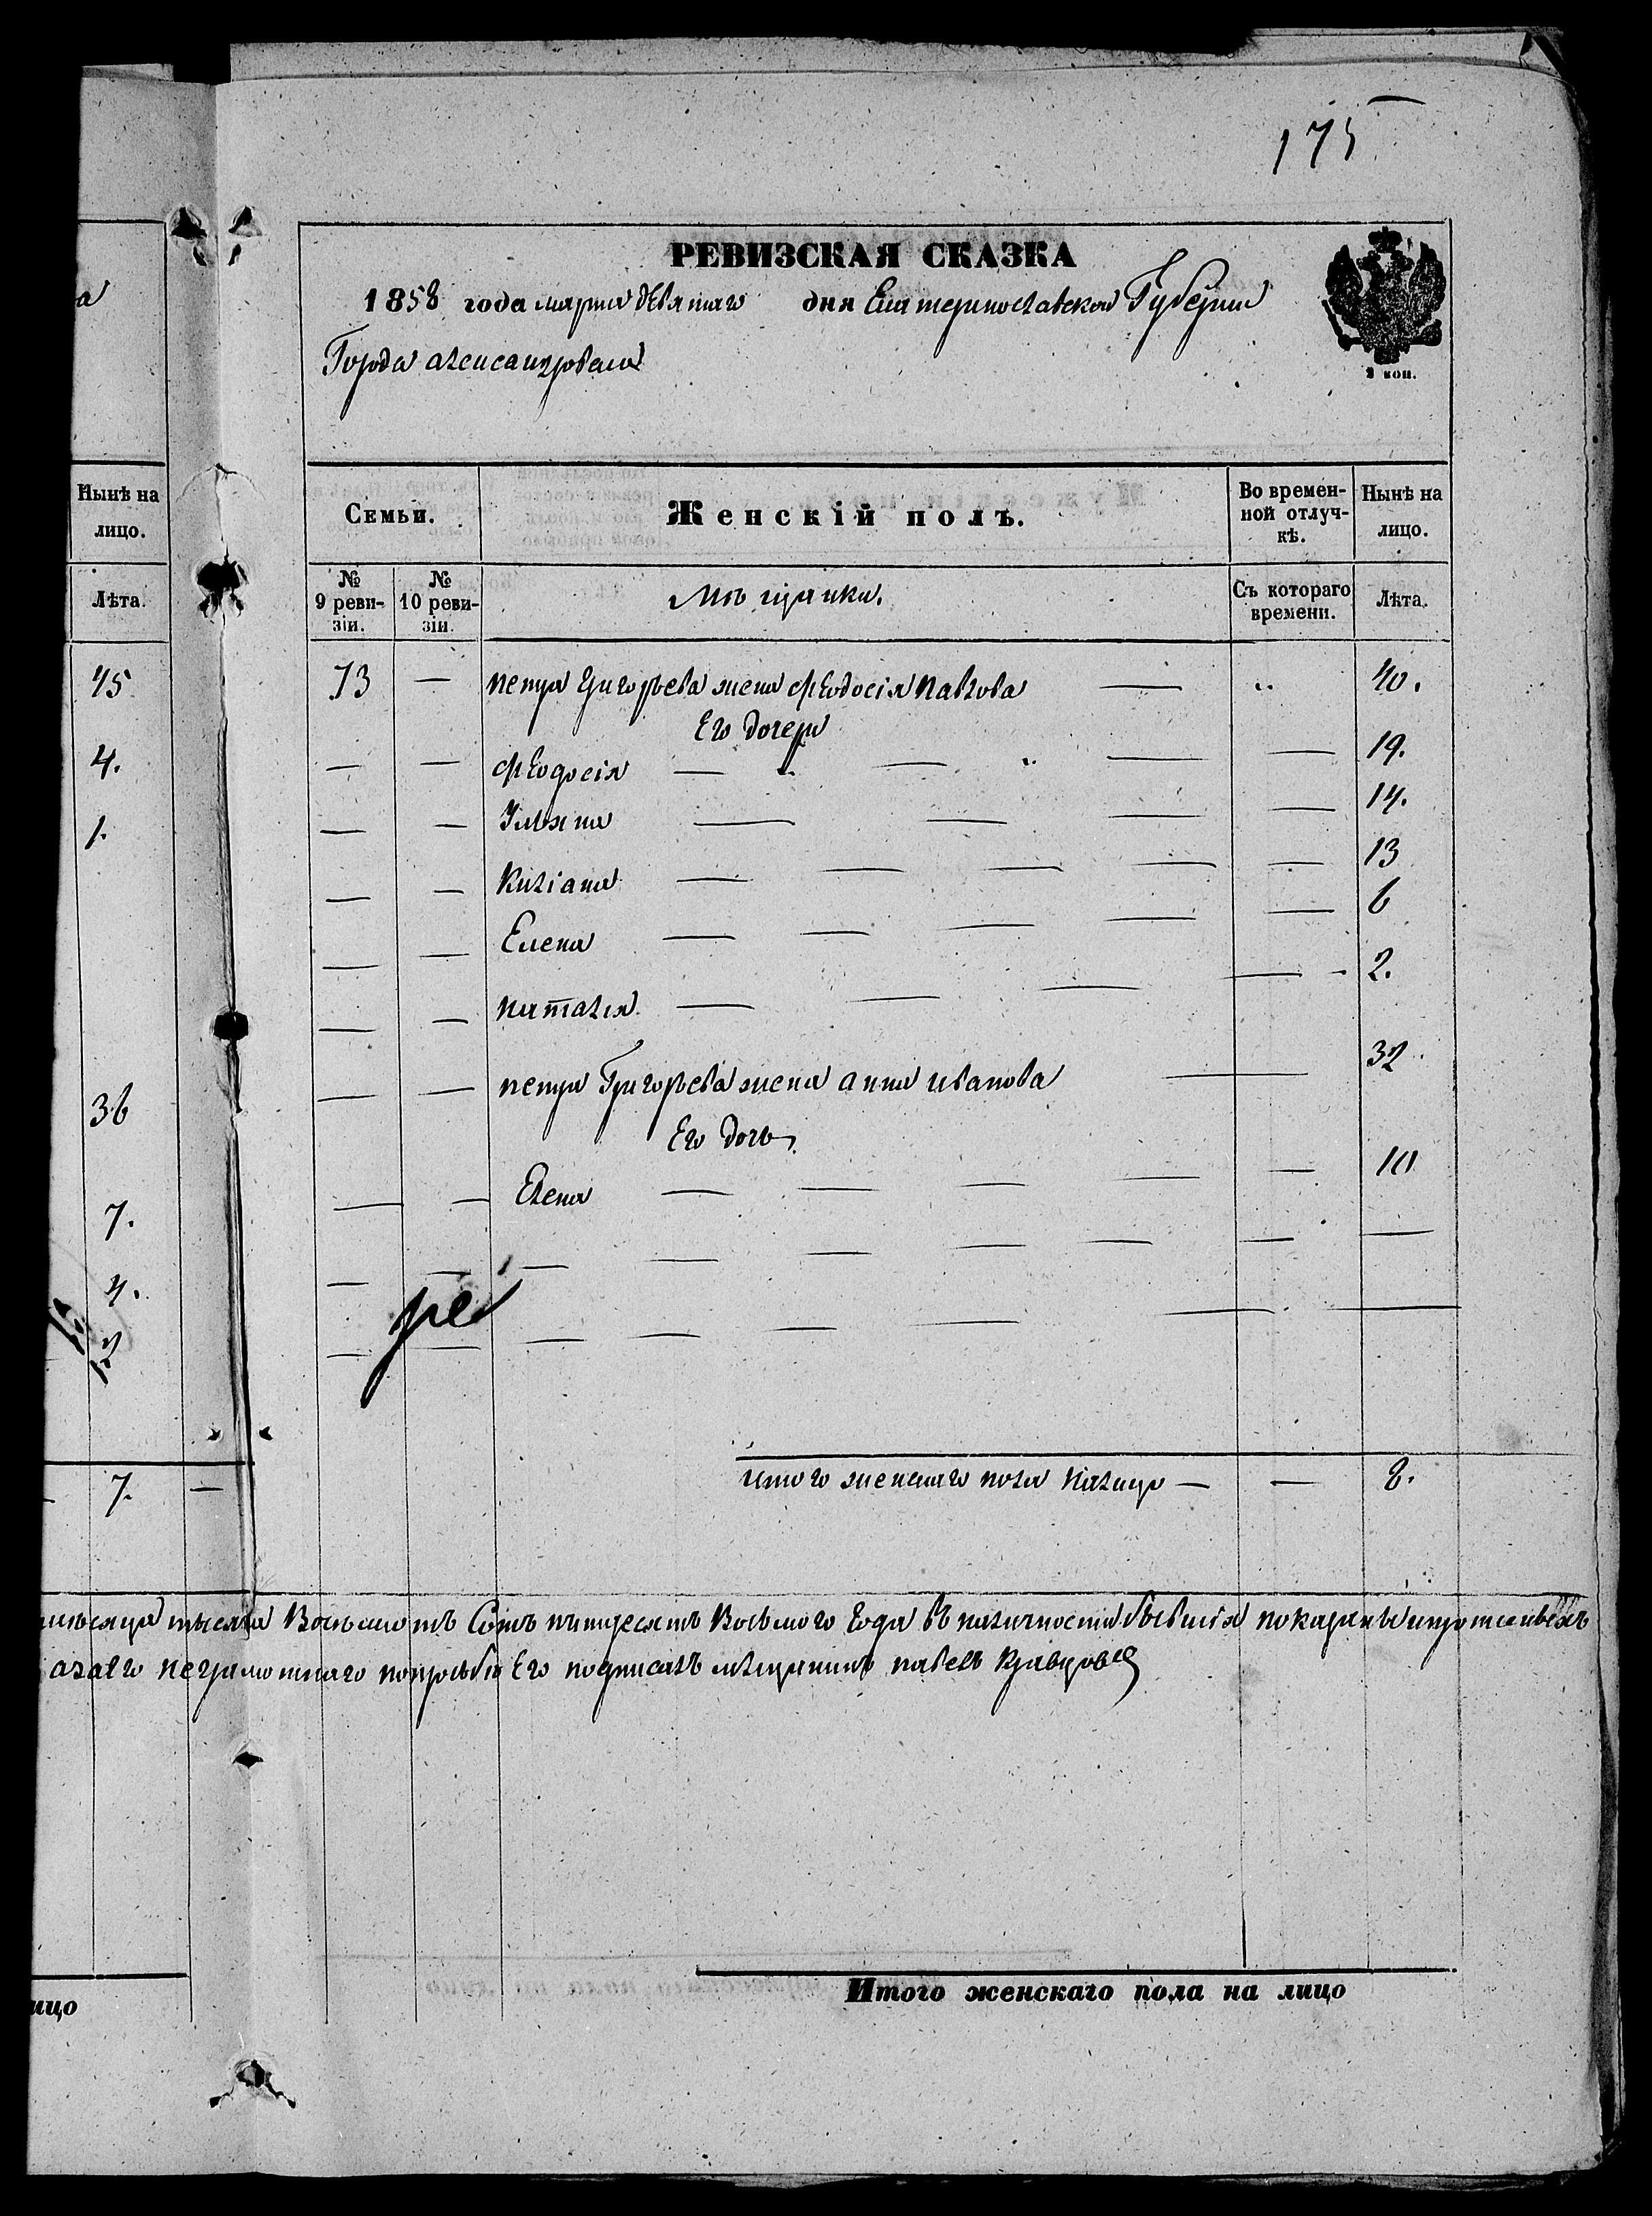 175
РЕВИЗСКАЯ СКАЗКА
1858 года марта девятаго дня Екатеринославской Губернии
Города александровска
2 коп.
а
Нынѣ на лицо.
Лѣта.
45
4.
1.
36
7.
4.
12
7. —
Семьи.
Женскій полъ.
Во времен-ной отлуч-кѣ.
Нынѣ на лицо.
№ 9 реви-зіи.
№ 10 реви-зіи.
мѣщанки.
Съ котораго времени.
Лѣта.
73 — петра григорьева жена феодосія павлова — 40.
Его дочери
— — феодосія — — — — 19.
— — Ульяна — — — — 14.
— — — — — — — 13
— — Елена — — — — — 6
— — наталія — — — — 2.
— — петра Григорьева жена анна иванова — 32
Его дочь
— — Елена — — — — — 10
итого женскаго пола налицо — — 8.
мѣсяца тысяча Восемь сотъ пятдесятъ Восьмого года въ наличности бывшія
неграмотнаго попрозьбѣ Его подписалъ мѣщанинъ павелъ Кравцовъ
Итого женскаго пола на лицо
ицо